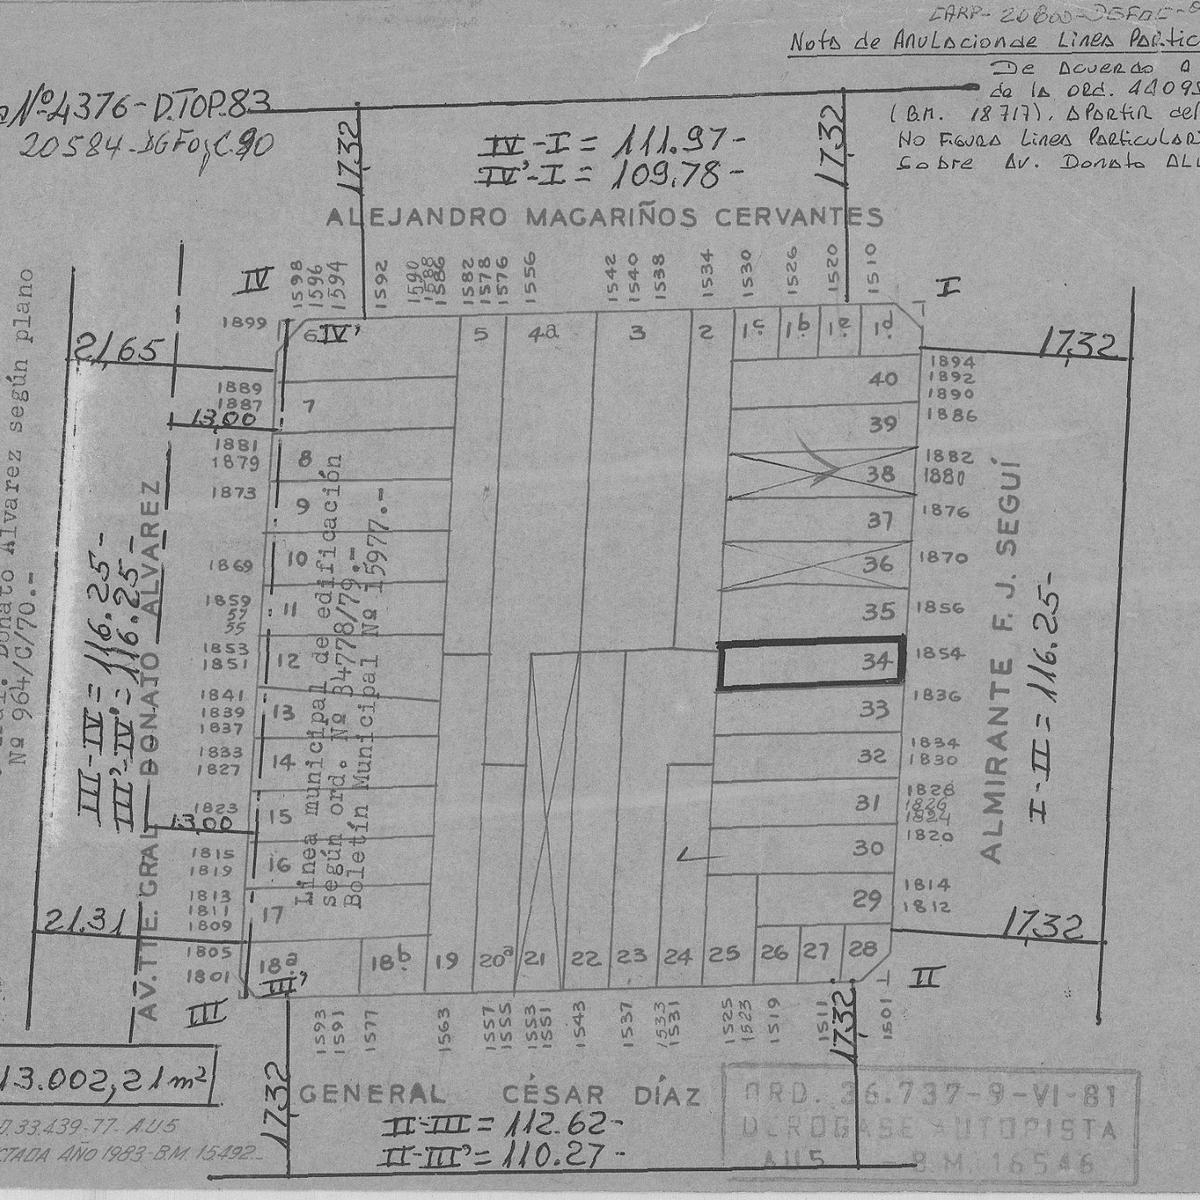 CARP- 20800-DGFOC-
Nota de Anulacion de Linea Partic
De Acuerdo a
de la ord. 44095
(B.M. 18.717), a partir del
No Figura Linea Particular
Sobre Av. Donato Al
Nº 4376-D.TOP.83
20584-DGFOyC.90
17.32
17.32
IV-I = 111.97-
IV'-I = 109.78-
ALEJANDRO MAGARIÑOS CERVANTES
1598
1596
1594
1592
1590
1588
1586
1582
1578
1576
1556
1542
1540
1538
1534
1530
1526
1520
1510
IV
I
1899
6
IV'
5
4a
3
2
1c
1b
1e
1d
21,65
17,32
1889
1887
13,00
7
40
1894
1892
1890
39
1886
1881
1879
8
38
1882
1880
1873
9
37
1876
1869
10
36
1870
1859
57
55
11
35
1856
1853
1851
12
34
1854
1841
1839
1837
13
33
1836
1833
1827
14
32
1834
1830
1823
13.00
15
31
1828
1826
1824
1815
1819
16
30
1820
1813
1811
1809
17
29
1814
1812
21.31
17.32
1805
1801
18a
18b
19
20a
21
22
23
24
25
26
27
28
III
III'
II
Donato Alvarez según plano
Nº 964/C/70.-
III-IV = 116.25-
III'-IV' = 116.25-
AV. TTE. GRAL. DONATO ALVAREZ
Línea municipal de edificación
según ord. Nº 34778/79.-
Boletín Municipal Nº 15977.-
ALMIRANTE F. J. SEGUÍ
I-II = 116.25-
1593
1591
1577
1563
1557
1555
1553
1551
1543
1537
1533
1531
1525
1523
1519
1511
1501
17.32
17.32
13.002,21 m²
GENERAL CÉSAR DÍAZ
II-III = 112.62-
II-III' = 110.27-
D.33.439-77. AU5
CTADA AÑO 1983-B.M. 15492-
ORD. 36.737-9-VI-81
DEROGASE AUTOPISTA
AU5 - B.M. 16546